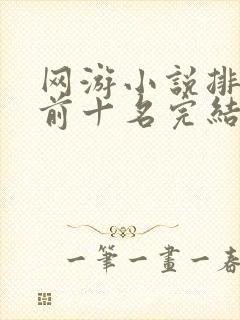 网游小説排
前十名完結
一筆一畫一春